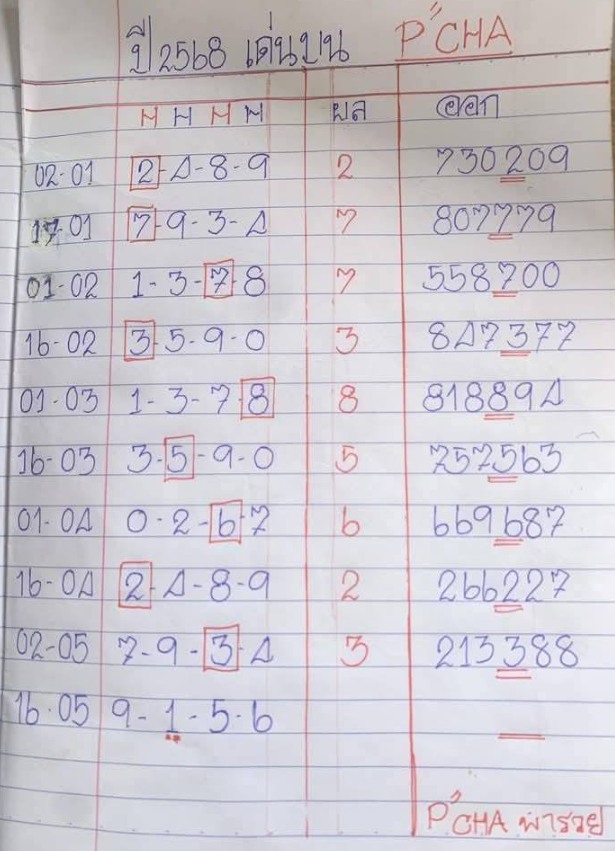 ปี 2568 เด่นบน P"CHA
H H H H ผล ออก
02-01 2-4-8-9 2 730209
17-01 7-9-3-4 7 807779
01-02 1-3-7-8 7 558700
16-02 3-5-9-0 3 847377
01-03 1-3-7-8 8 818894
16-03 3-5-9-0 5 757563
01-04 0-2-6-7 6 669687
16-04 2-4-8-9 2 266227
02-05 7-9-3-4 3 213388
16-05 9-1-5-6
P"CHA พารวย